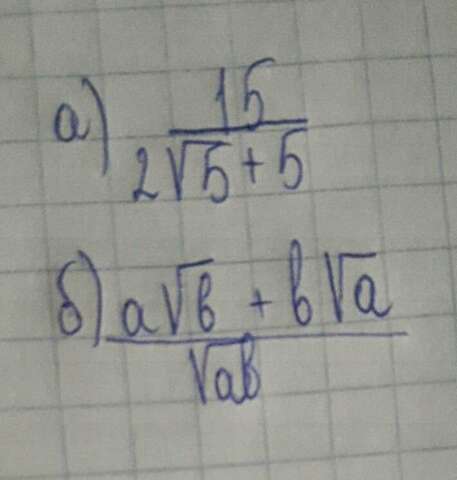 а) 15 / (2√5 + 5)
б) (a√b + b√a) / √ab